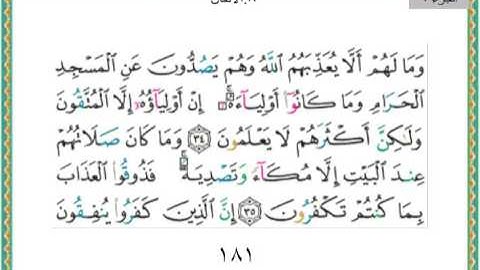 الأنفال
وَمَا لَهُمْ أَلَّا يُعَذِّبَهُمُ اللَّهُ وَهُمْ يَصُدُّونَ عَنِ الْمَسْجِدِ
الْحَرَامِ وَمَا كَانُوا أَوْلِيَاءَهُ إِنْ أَوْلِيَاؤُهُ إِلَّا الْمُتَّقُونَ
وَلَٰكِنَّ أَكْثَرَهُمْ لَا يَعْلَمُونَ ٣٤ وَمَا كَانَ صَلَاتُهُمْ
عِندَ الْبَيْتِ إِلَّا مُكَاءً وَتَصْدِيَةً فَذُوقُوا الْعَذَابَ
بِمَا كُنتُمْ تَكْفُرُونَ ٣٥ إِنَّ الَّذِينَ كَفَرُوا يُنفِقُونَ
١٨١